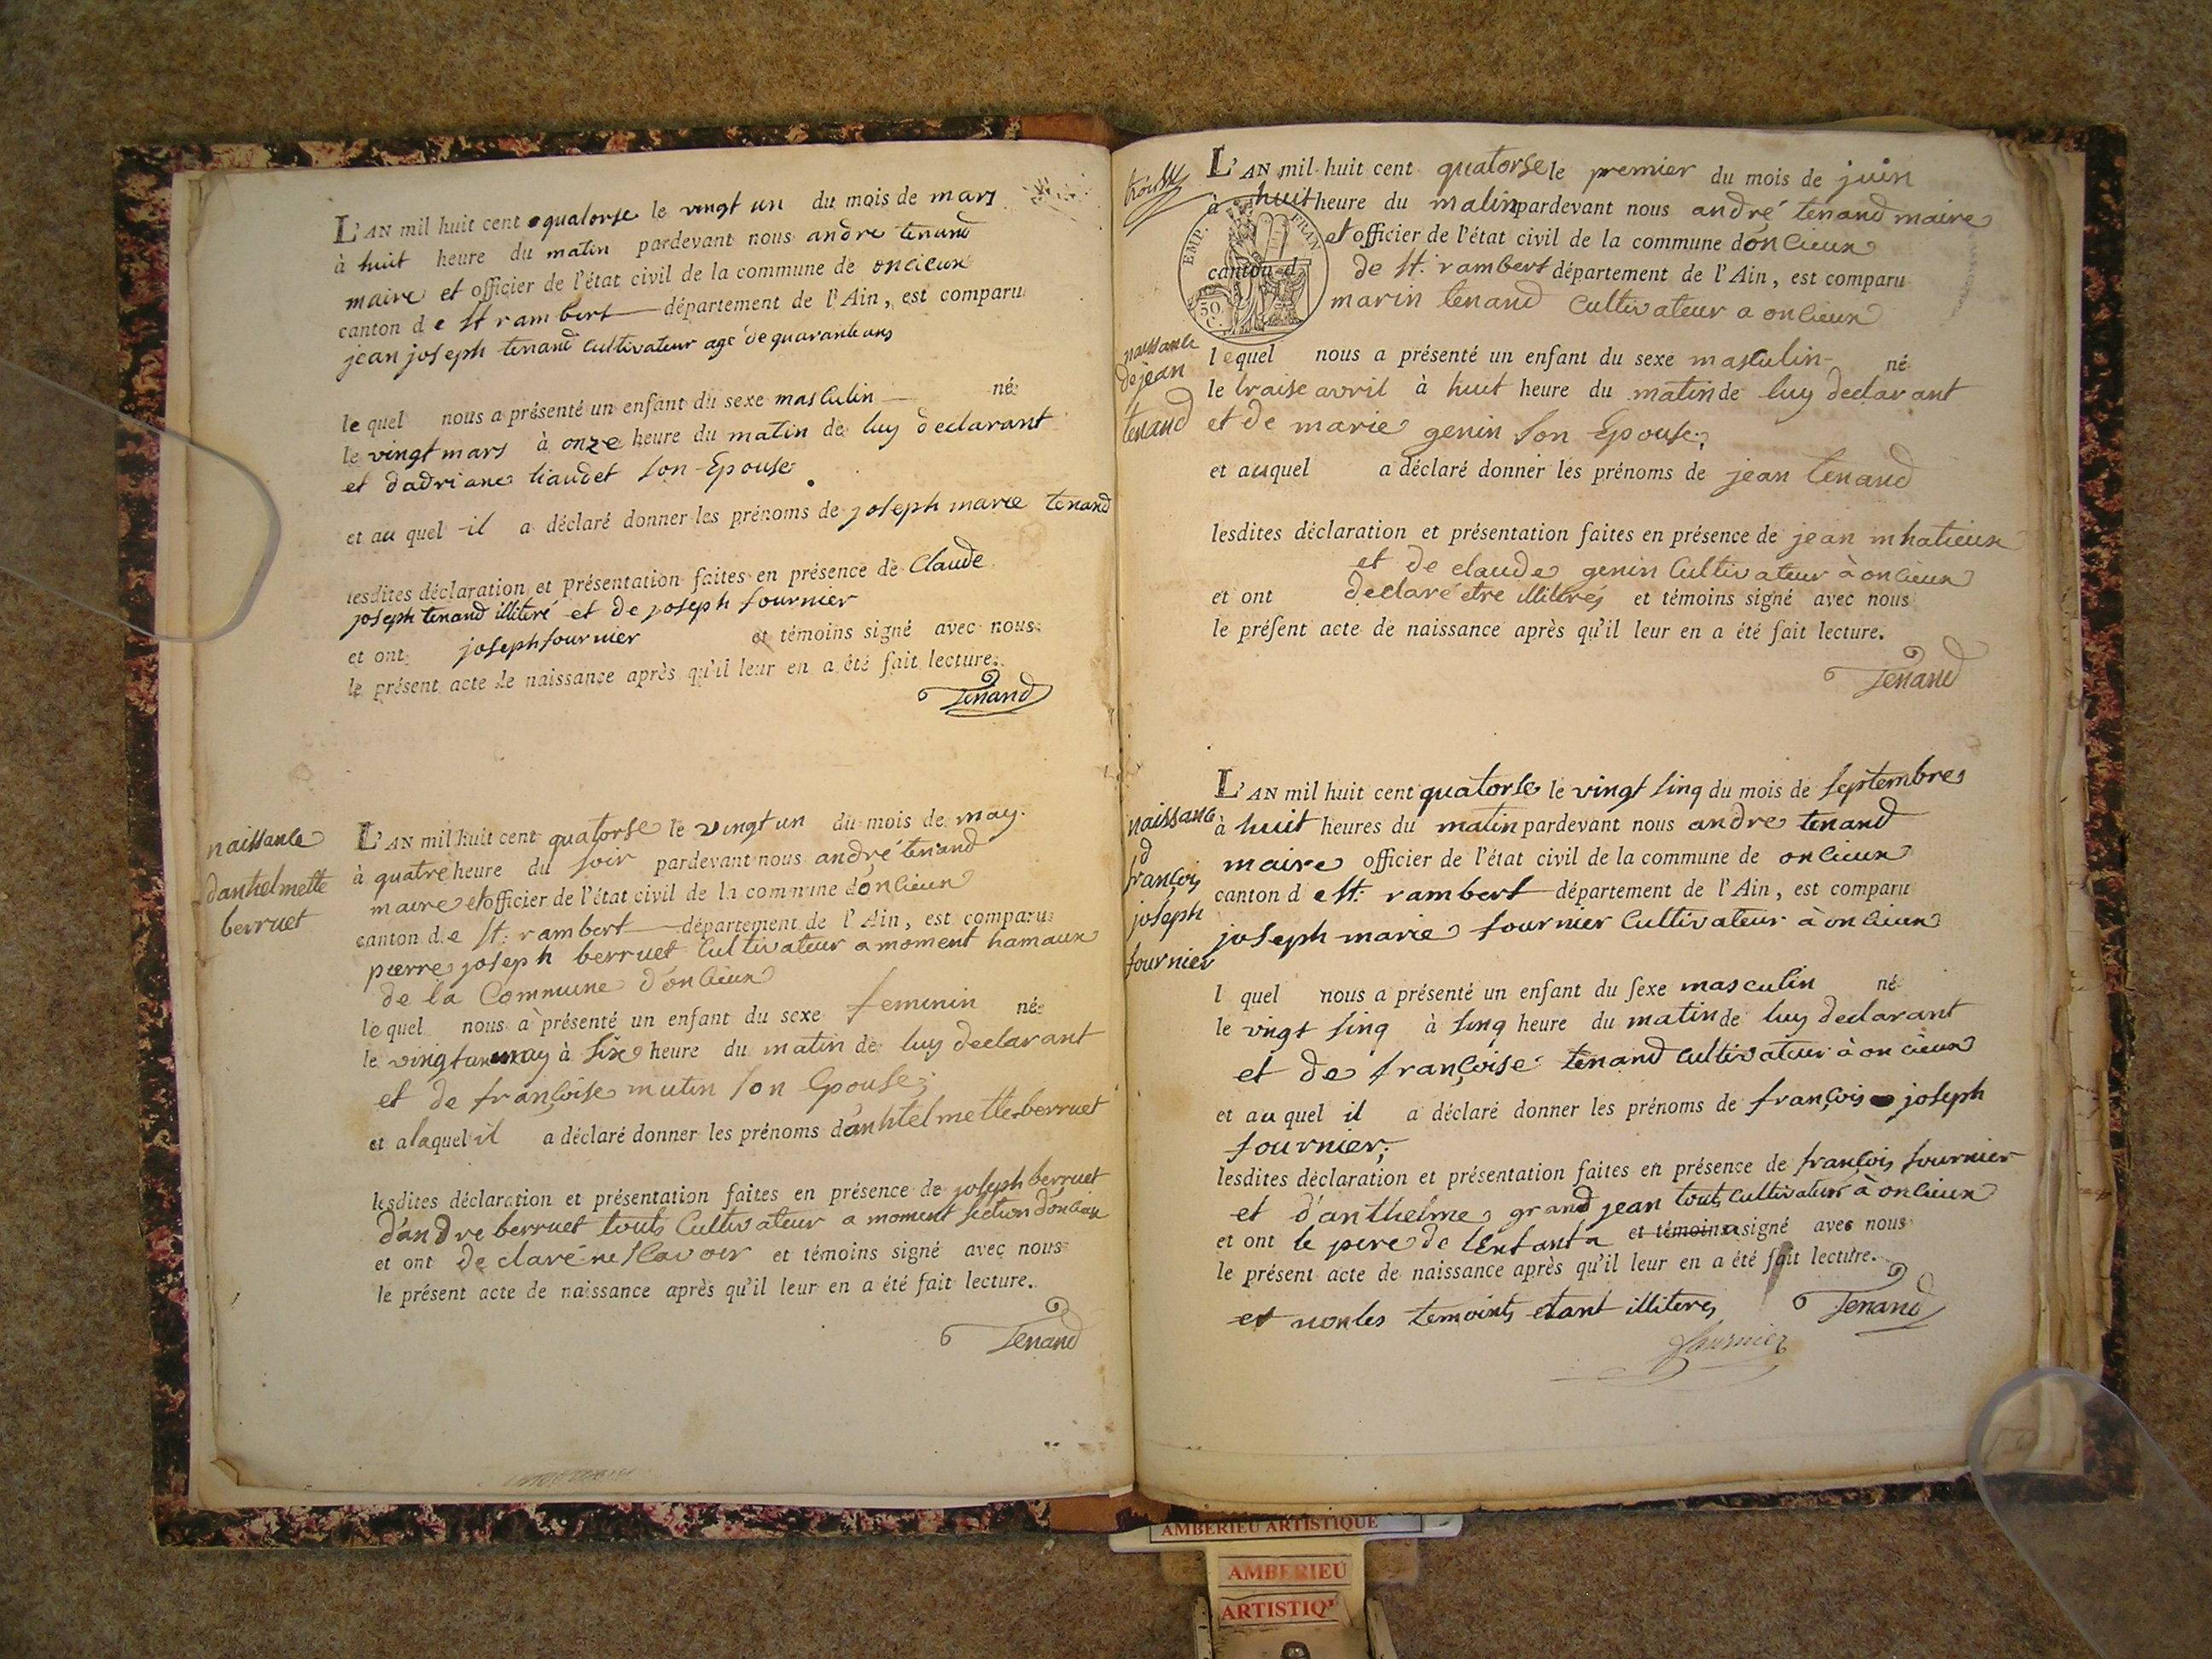 L'AN mil huit cent quatorse le vingt un du mois de mars
à huit heure du matin pardevant nous andre tenand
maire et officier de l'état civil de la commune de oncieux
canton de st rambert département de l'Ain, est comparu
jean joseph tenand cultivateur agé de quarante ans
lequel nous a présenté un enfant du sexe masculin né
le vingt mars à onze heure du matin de luy declarant
et dadriane tiaudet son Epouse
et au quel il a déclaré donner les prénoms de joseph marie tenand
lesdites déclaration et présentation faites en présence de Claude
joseph tenand illiteré et de joseph fournier
et ont joseph fournier et témoins signé avec nous
le présent acte de naissance après qu'il leur en a été fait lecture.
Tenand
naissance
danthelmette
berruet
L'AN mil huit cent quatorse le vingt un du mois de may
à quatre heure du soir pardevant nous andré tenand
maire et officier de l'état civil de la commune d'oncieux
canton de st. rambert département de l'Ain, est comparu
pierre joseph berruet Cultivateur a moment hamaux
de la Commune d'oncieux
lequel nous a présenté un enfant du sexe feminin né
le vingt un may à six heure du matin de luy declarant
et de françoise mutin son Epouse;
et a laquel il a déclaré donner les prénoms d'anhtelmette berruet
lesdites déclaration et présentation faites en présence de joseph berruet
d'andre berruet touts Cultivateur a moment section d'oncieux
et ont declaré ne scavoir et témoins signé avec nous
le présent acte de naissance après qu'il leur en a été fait lecture.
Tenand
L'AN mil huit cent quatorse le premier du mois de juin
à huit heure du matin pardevant nous andré tenand maire
et officier de l'état civil de la commune d'oncieux
canton d de st. rambert département de l'Ain, est comparu
marin tenand Cultivateur a oncieux
EMP. FRAN
50 C.
naissance
de jean
tenand
lequel nous a présenté un enfant du sexe masculin né
le traise avril à huit heure du matin de luy declarant
et de marie genin son Epouse;
et auquel a déclaré donner les prénoms de jean tenand
lesdites déclaration et présentation faites en présence de jean mhatieux
et de claude genin Cultivateur à oncieux
et ont declaré etre illiterés et témoins signé avec nous
le présent acte de naissance après qu'il leur en a été fait lecture.
Tenand
naissance
d
françois
joseph
fournier
L'AN mil huit cent quatorse le vingt sinq du mois de septembre
à huit heures du matin pardevant nous andre tenand
maire officier de l'état civil de la commune de oncieux
canton de st. rambert département de l'Ain, est comparu
joseph marie fournier Cultivateur à oncieux
l quel nous a présenté un enfant du sexe masculin né
le vingt sinq à sinq heure du matin de luy declarant
et de françoise tenand cultivateur à oncieux
et au quel il a déclaré donner les prénoms de françois joseph
fournier;
lesdites déclaration et présentation faites en présence de françois fournier
et d'anthelme grand jean touts cultivateur à oncieux
et ont le pere de l'Enfant a et témoins signé avec nous
le présent acte de naissance après qu'il leur en a été fait lecture.
et non les temoints etant illiteres
Tenand
fournier
AMBERIEU ARTISTIQUE
AMBERIEU
ARTISTIQ'